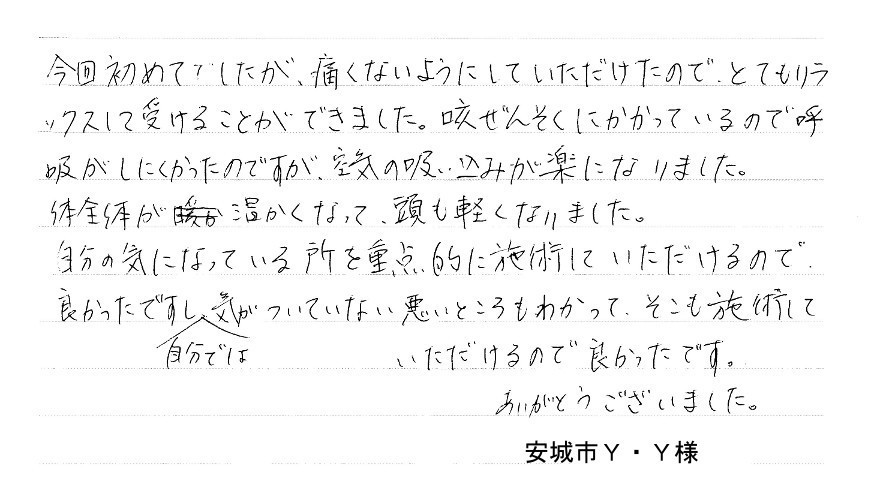 今回初めてでしたが、痛くないようにしていただけたので、とてもリラ
ックスして受けることができました。咳ぜんそくにかかっているので呼
吸がしにくかったのですが、空気の吸い込みが楽になりました。
体全体が温かくなって、頭も軽くなりました。
自分の気になっている所を重点的に施術していただけるので、
良かったですし、気がついていない悪いところもわかって、そこも施術して
自分では
いただけるので良かったです。
ありがとうございました。
安城市Y・Y様